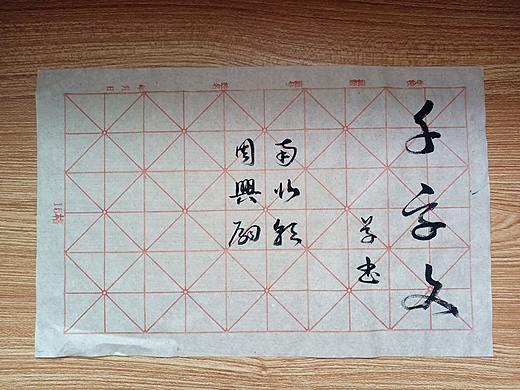 千字文
学书
南北朝
周興嗣